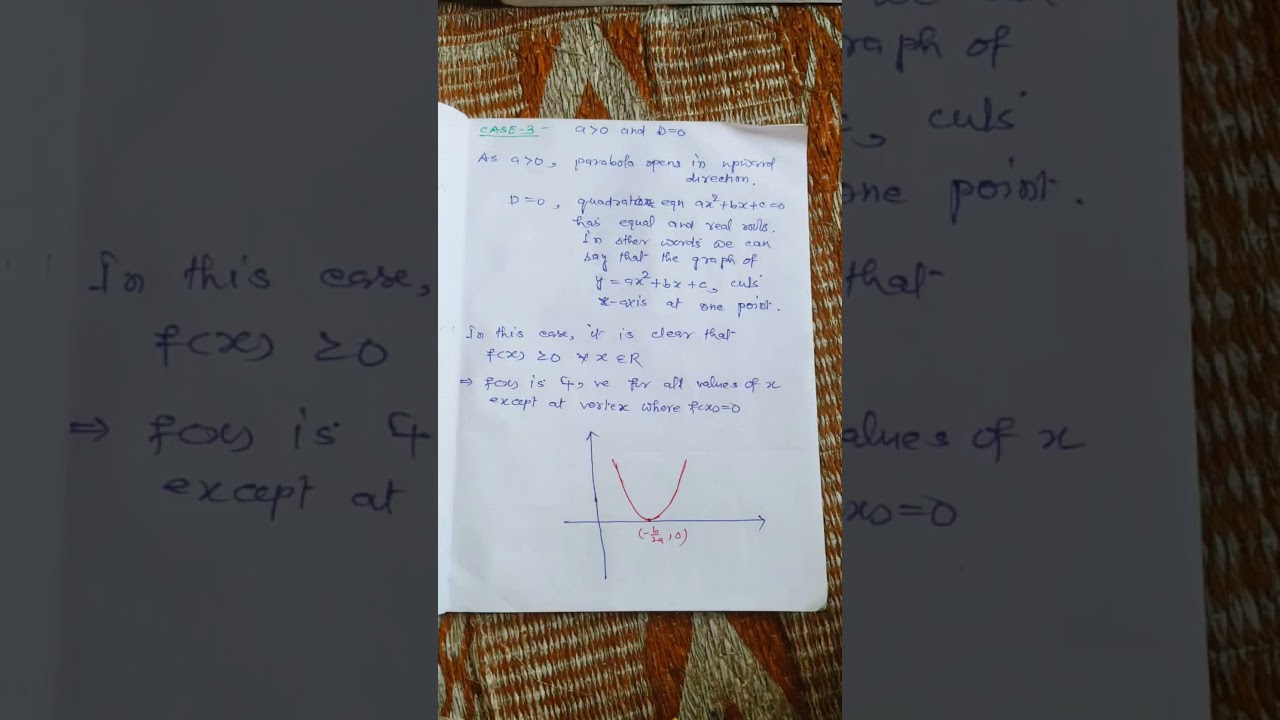 CASE-3 - a>0 and D=0
As a>0, parabola opens in upward
direction.
D=0, quadratic eqn ax²+bx+c=0
has equal and real roots.
In other words we can
say that the graph of
y=ax²+bx+c, cuts
x-axis at one point.
In this case, it is clear that
f(x) ≥0 ∀ x ∈R
⇒ f(x) is +ve for all values of x
except at vertex where f(x)=0
(-b/2a, 0)